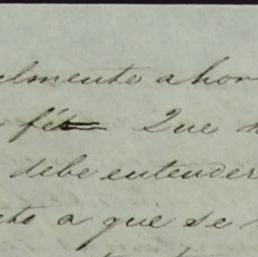 elmente a hon
fé Que
debe entender
to a que se